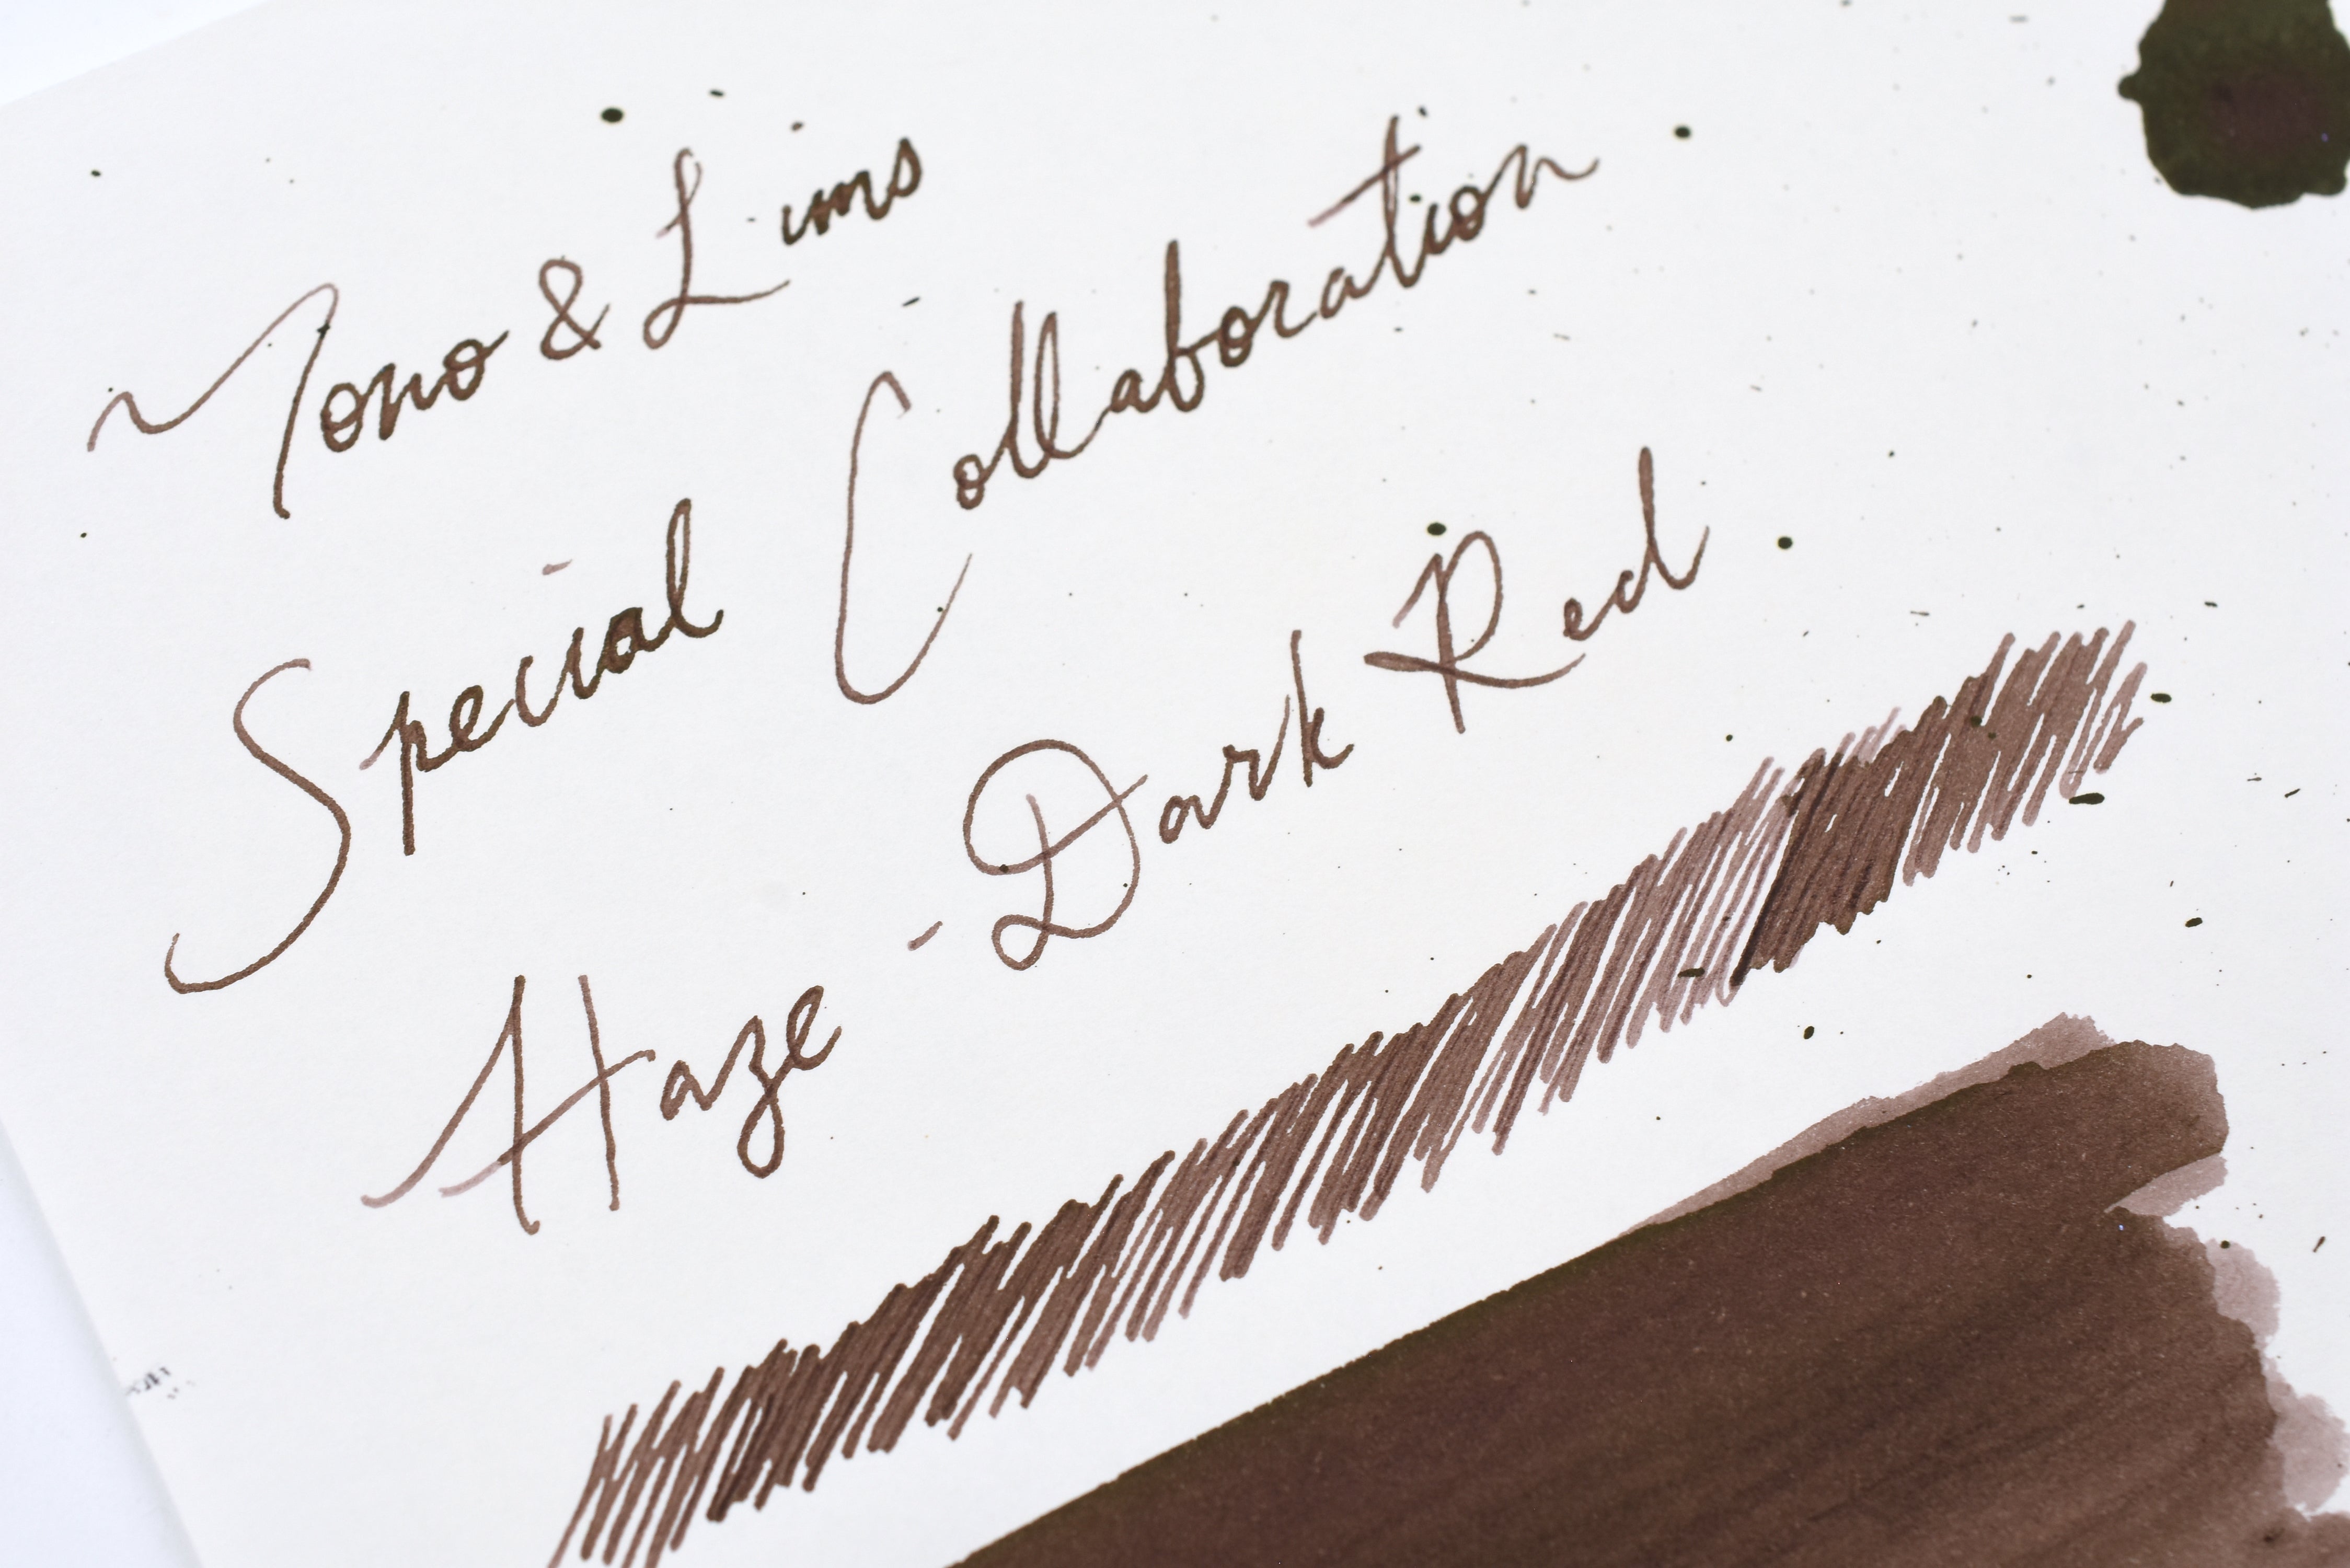 Tono & Lims
Special Collaboration
Haze - Dark Red